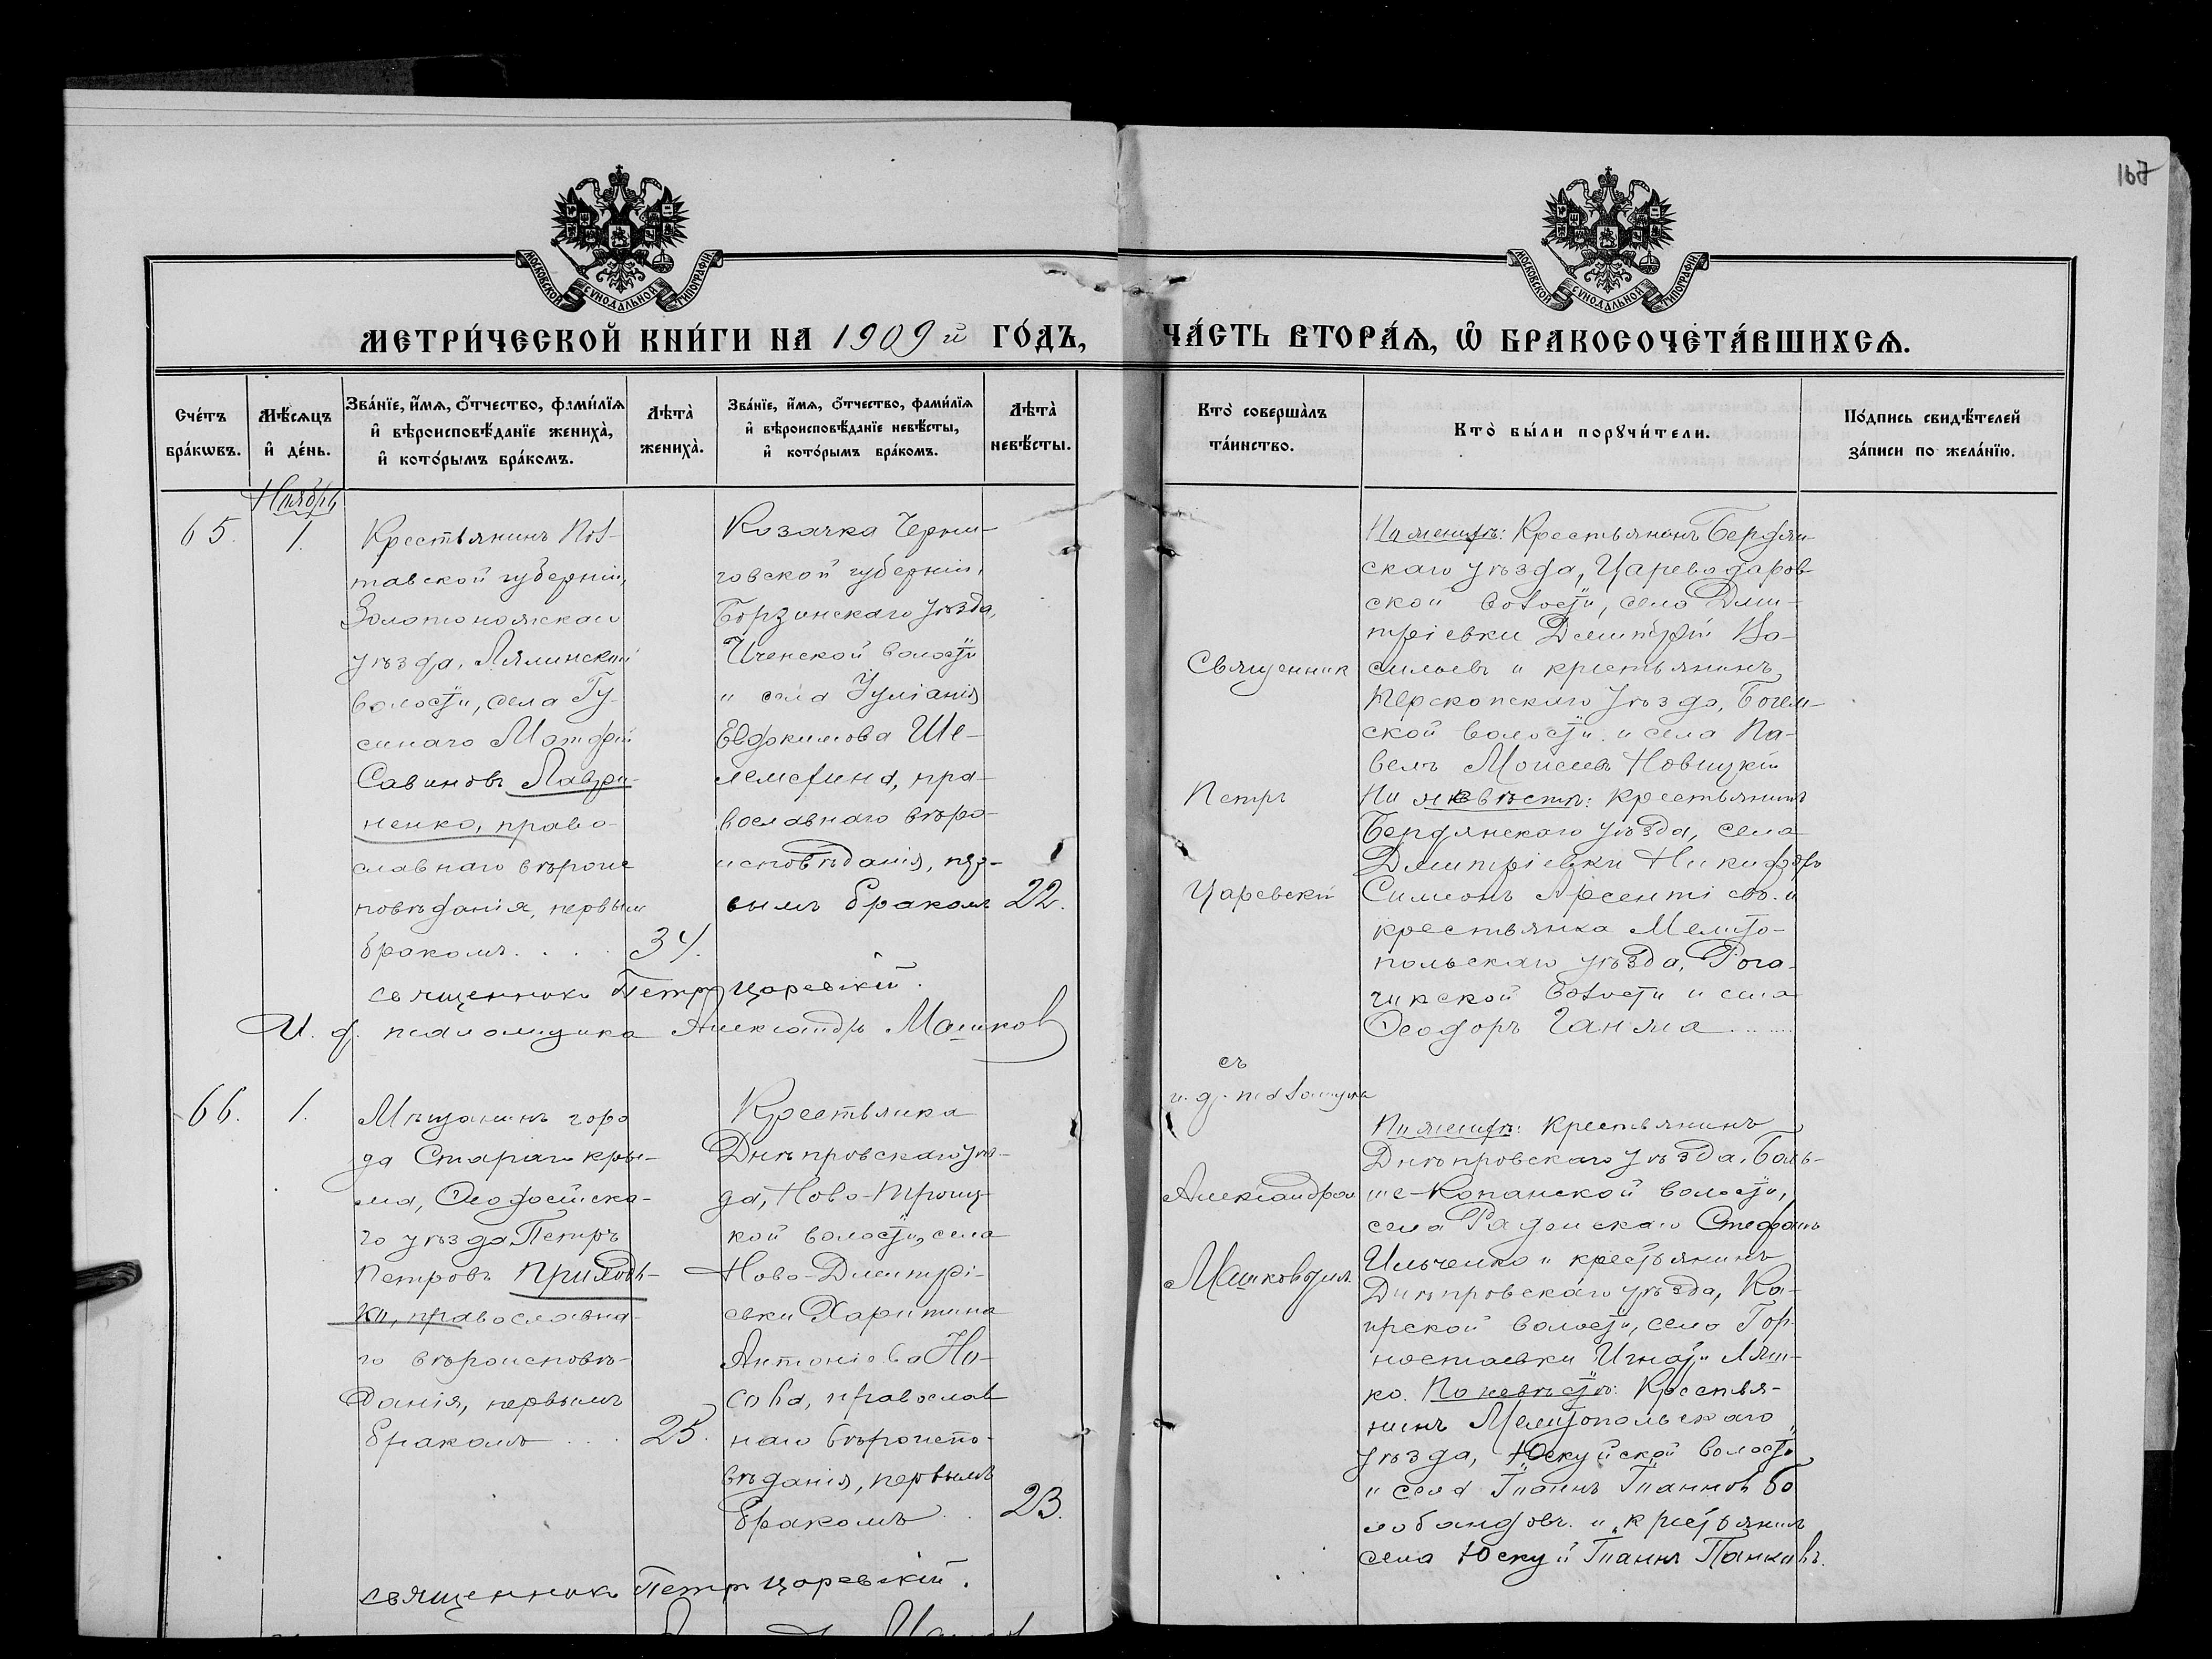 167
МОСКОВСКОЙ СУНОДАЛЬНОЙ ТИПОГРАФІИ
МОСКОВСКОЙ СУНОДАЛЬНОЙ ТИПОГРАФІИ
МЕТРИ́ЧЕСКОЙ КНИ́ГИ НА 1909й ГО́ДЪ,
ЧА́СТЬ ВТОРА́Ѧ, Ѡ҆ БРАКОСОЧЕТА́ВШИХСѦ.
Сче́тъ бра́кѡвъ.
Мѣ́сѧцъ и҆ де́нь.
Зва́нїе, и҆́мѧ, ѻ҆́тчество, фами́лїѧ
и҆ вѣроисповѣ́данїе жениха̀,
и҆ кото́рымъ бра́комъ.
Лѣта̀ жениха̀.
Зва́нїе, и҆́мѧ, ѻ҆́тчество, фами́лїѧ
и҆ вѣроисповѣ́данїе невѣ́сты,
и҆ кото́рымъ бра́комъ.
Лѣта̀ невѣ́сты.
Кто̀ соверша̀лъ та́инство.
Кто̀ бы́ли порꙋчи́тели.
По́дпись свидѣ́телей за́писи по жела́нїю.
Ноябрь
65.
1.
Крестьянинъ Пол-
тавской губерніи,
Золотоношскаго
уѣзда, Лялинской
волости, села Гу-
синаго Матфій
Савиновъ Лаври-
ненко, право-
славнаго вѣроис
повѣданія, первым
бракомъ. . . .
34.
Козачка Черни-
говской губерніи,
Борзинскаго уѣзда,
Иченской волости
и села Іуліанія
Евдокимова Ше-
лемехина, пра-
вославнаго вѣро-
исповѣданія, пер-
вымъ бракомъ
22.
Священникъ Петръ Царевскій.
И. д. псаломщика Александръ Машков
Священник
Петръ
Царевскій
съ
и. д. псаломщика
Александром
Машковым.
По женихѣ: Крестьянинъ Бердян-
скаго уѣзда, Цареводаров
ской волости, села Дми-
тріевки Димитрій Ва-
сильевъ и крестьянинъ
Перекопскаго уѣзда, Богем-
ской волости и села Па-
велъ Моисеевъ Новицкій
По невѣстѣ: крестьянинъ
Бердянскаго уѣзда, села
Дмитріевки Никифоръ
Симеонъ Арсентіевъ и
крестьянка Мелито-
польскаго уѣзда, Рога-
чикской волости и села
Ѳеодоръ Ганжа . . . .
66.
1.
Мѣщанинъ горо
да Стараго Кры-
ма, Ѳеодосійска-
го уѣзда Петръ
Петровъ Приходь-
ко, православна-
го вѣроисповѣ-
данія, первымъ
бракомъ . . .
25.
Крестьянка
Днѣпровскаго уѣз-
да, Ново-Троиц-
кой волости, села
Ново-Димитрі-
евки Харитина
Антоніова Но-
сова, православ
наго вѣроиспо-
вѣданія, первымъ
бракомъ . .
23.
По женихѣ: крестьянинъ
Днѣпровскаго уѣзда, Боль-
ше-Копанской волости,
села Раденскаго Стефанъ
Ильченко и крестьянинъ
Днѣпровскаго уѣзда, Ка-
ирской волости, села Гор-
ностаевки Игнатій Ляш-
ко. По невѣстѣ: Крестья-
нинъ Мелитопольскаго
уѣзда, Юскуйской волости
и села Іоаннъ Іоанновъ
и крестьянинъ
села Юскуй Іоаннъ Панковъ.
Священникъ Петръ Царевскій.